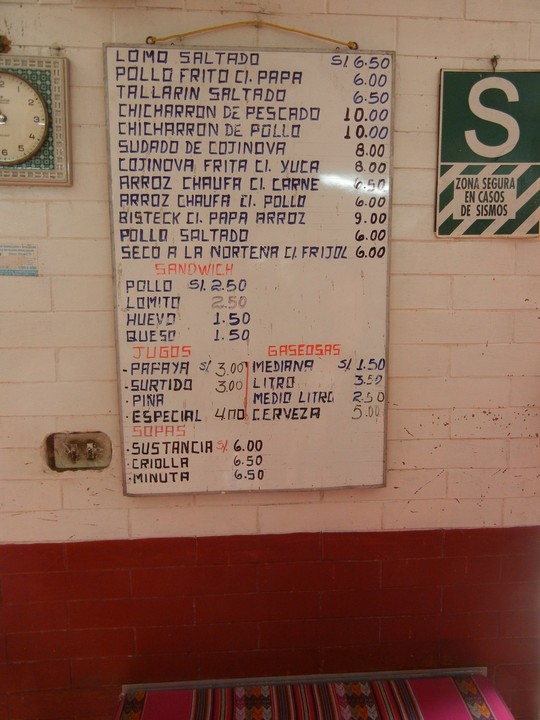 LOMO SALTADO S/. 6.50
POLLO FRITO C/. PAPA 6.00
TALLARIN SALTADO 6.50
CHICHARRON DE PESCADO 10.00
CHICHARRON DE POLLO 10.00
SUDADO DE COJINOVA 8.00
COJINOVA FRITA C/. YUCA 8.00
ARROZ CHAUFA C/. CARNE 6.50
ARROZ CHAUFA C/. POLLO 6.00
BISTECK C/. PAPA ARROZ 9.00
POLLO SALTADO 6.00
SECO A LA NORTENA C/. FRIJOL 6.00
SANDWICH
POLLO S/. 2.50
LOMITO 2.50
HUEVO 1.50
QUESO 1.50
JUGOS
- PAPAYA S/. 3.00
- SURTIDO 3.00
- PIÑA
- ESPECIAL 4.00
GASEOSAS
MEDIANA S/. 1.50
LITRO 3.50
MEDIO LITRO 2.50
CERVEZA 5.00
SOPAS
- SUSTANCIA S/. 6.00
- CRIOLLA 6.50
- MINUTA 6.50
S
ZONA SEGURA
EN CASOS
DE SISMOS